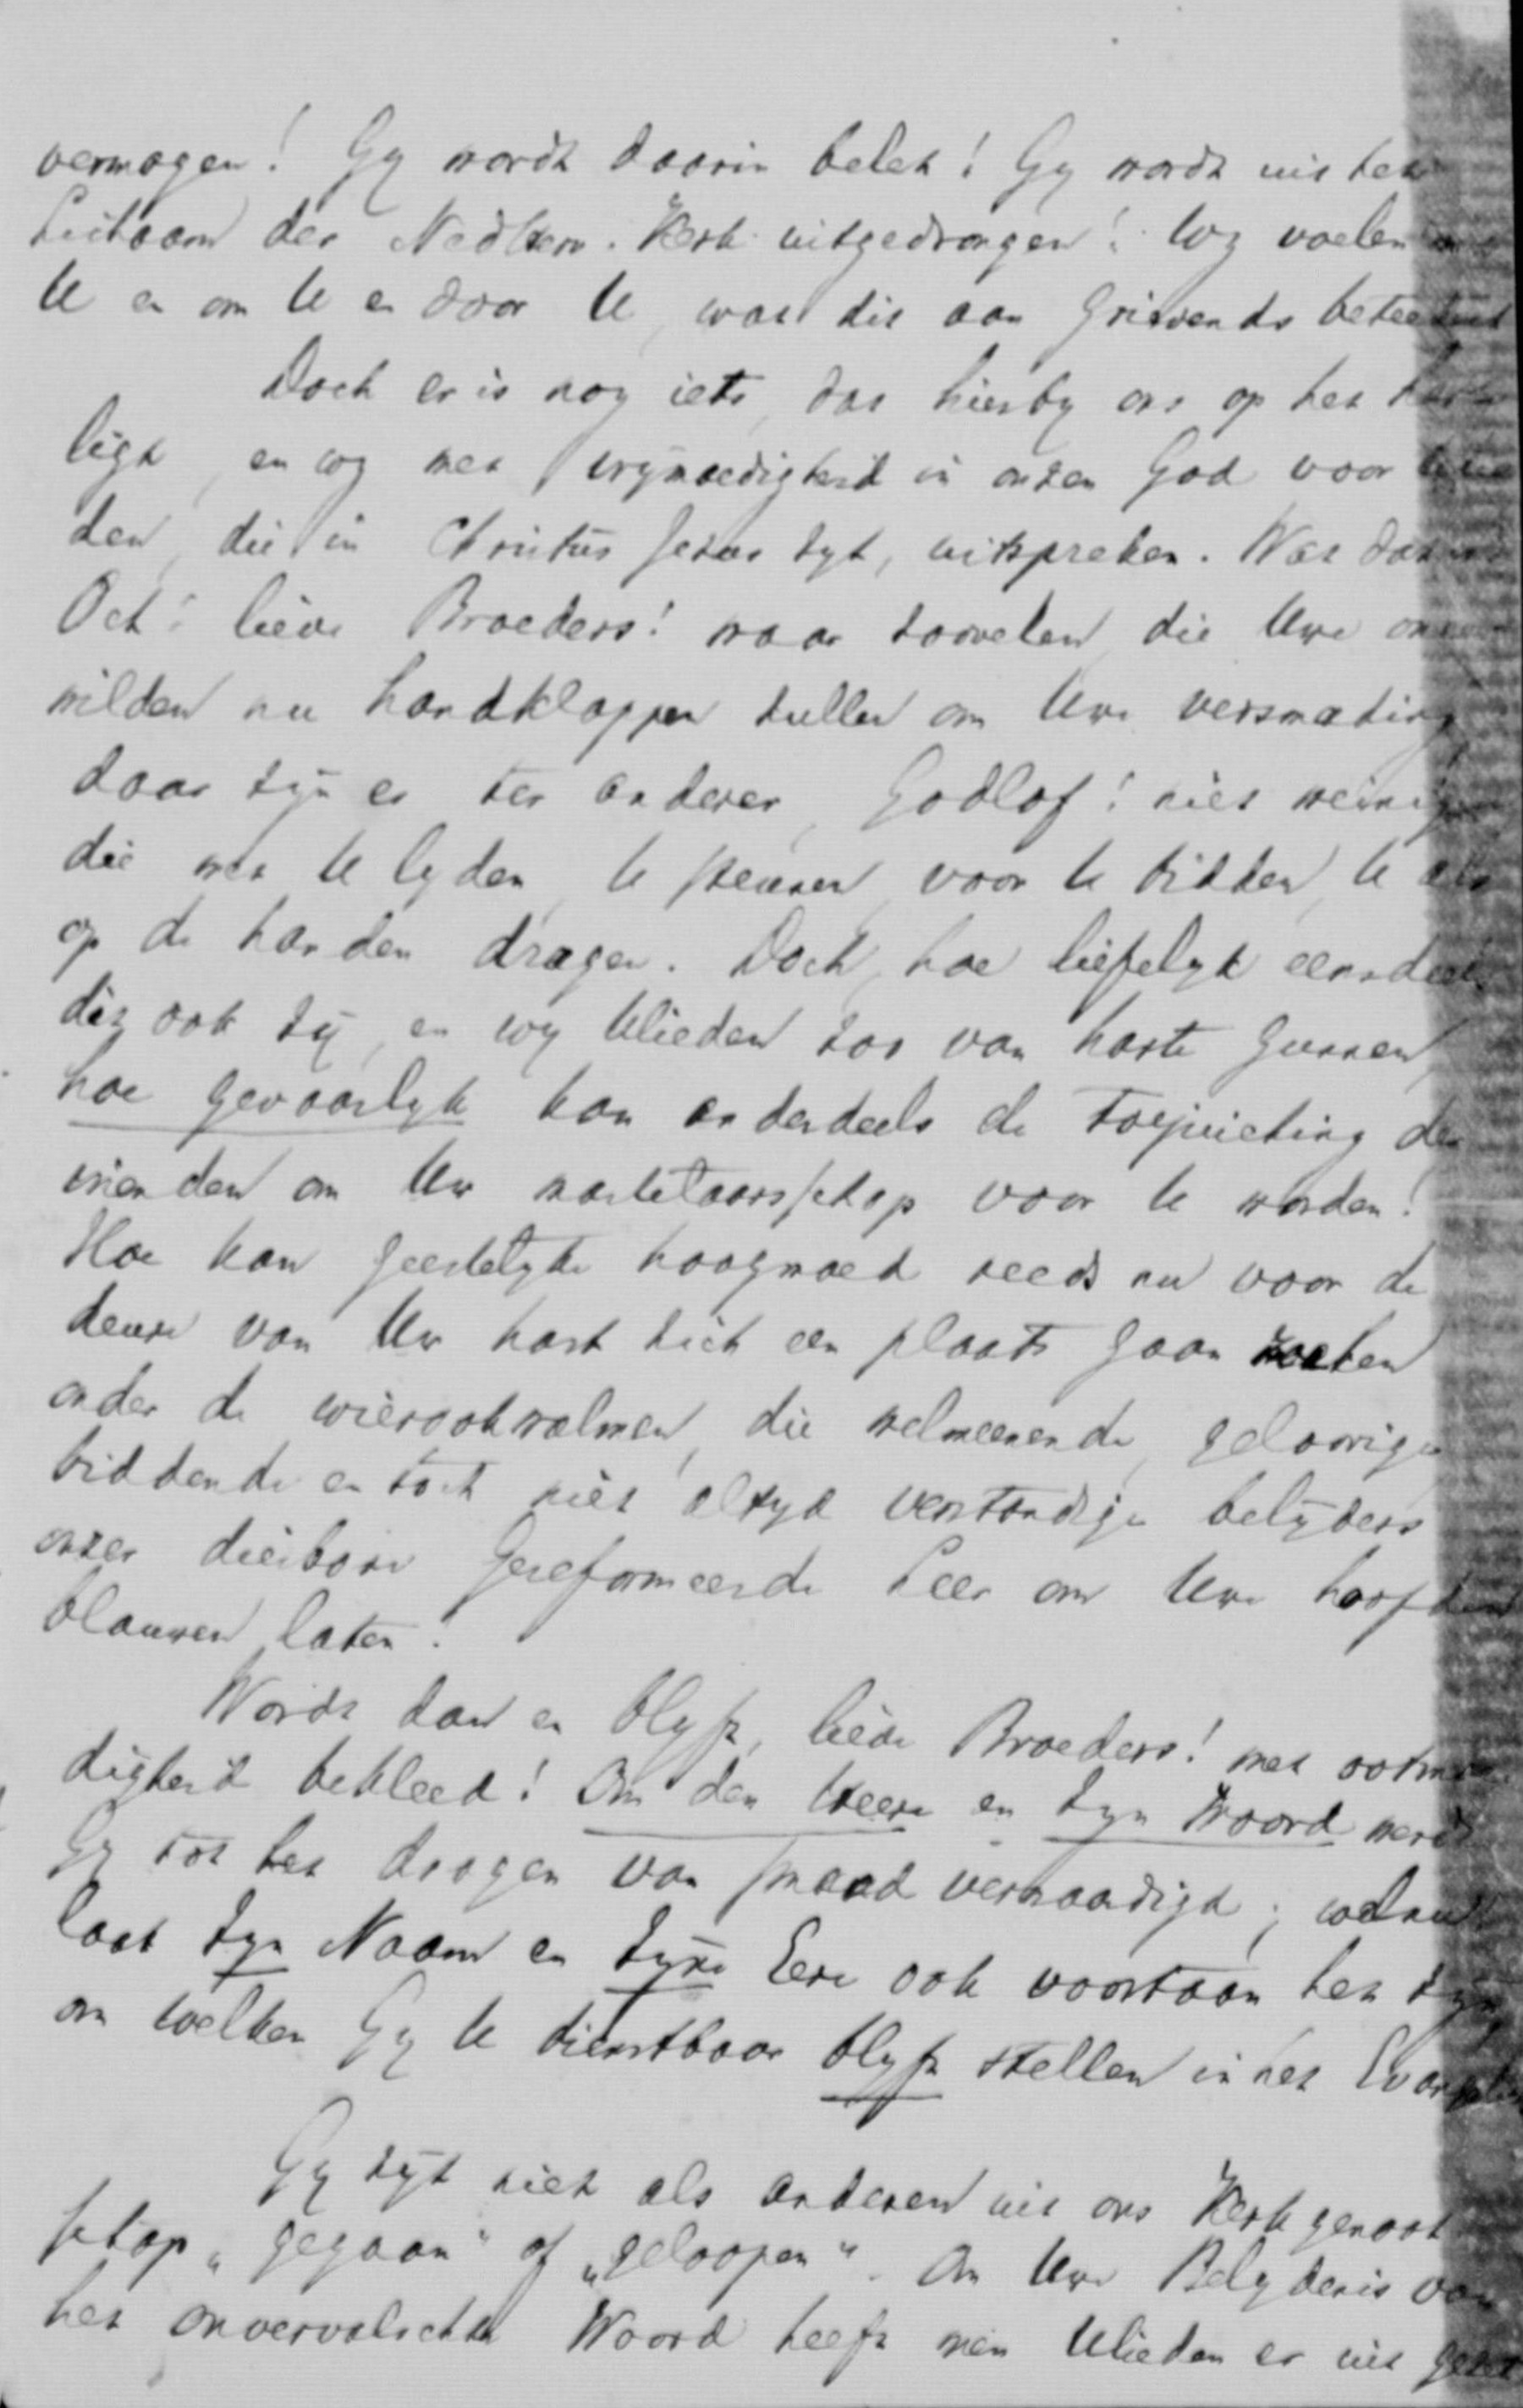 vermogen! Gy wordt daarin belet! Gy wordt uit het
Lichaam der Nedherv. Kerk uitgedrongen! Wy voelen
U en om U en door U, wat dit aan Grievends beteekent
Doch er is nog iets, dat hierby ons op het hart
ligt, en wy met vrymoedigheid in onzen God voor
den, die in Christus Jezus zyt, uitspreken. Wat dat
Och! lieve Broeders! waar zoovelen, die Uwe
wilden nu handklappen zullen om Uwe versmading,
daar zyn er ter anderer, Godlof! niet weinigen
die met U lyden, U steunen, voor U bidden, U als
op de handen dragen. Doch, hoe liefelyk eensdeels
dit ook zy, en wy Ulieden zoo van harte gunnen,
hoe gevaarlyk kan anderdeels de toejuiching der
vrienden om Uw martelaarschap voor U worden!
Hoe kan geestelyke hoogmoed reeds nu voor de
deure van Uw hart zich een plaats gaan zoeken
onder de wierookwalmen, die welmeenende, geloovige
biddende en toch niet altyd verstandige belyders
onzer dierbare Gereformeerde Leer om Uwe hoofden
blauwen laten!
Wordt dan en blyft, lieve Broeders! met ootmoe
digheid bekleed! Om den Heere en Zyn Woord werdt
Gy tot het dragen van smaad verwaardigd; welnu
laat Zyn Naam en Zyne Eere ook voortaan het zyn,
om welken Gy U dienstbaar blyft stellen in het Evangelie
Gy zyt niet als anderen uit ons Kerkgenoot
schap „gegaan" of „geloopen". Om Uwe Belydenis van
het onvervalschte Woord heeft men Ulieden er uit gezet